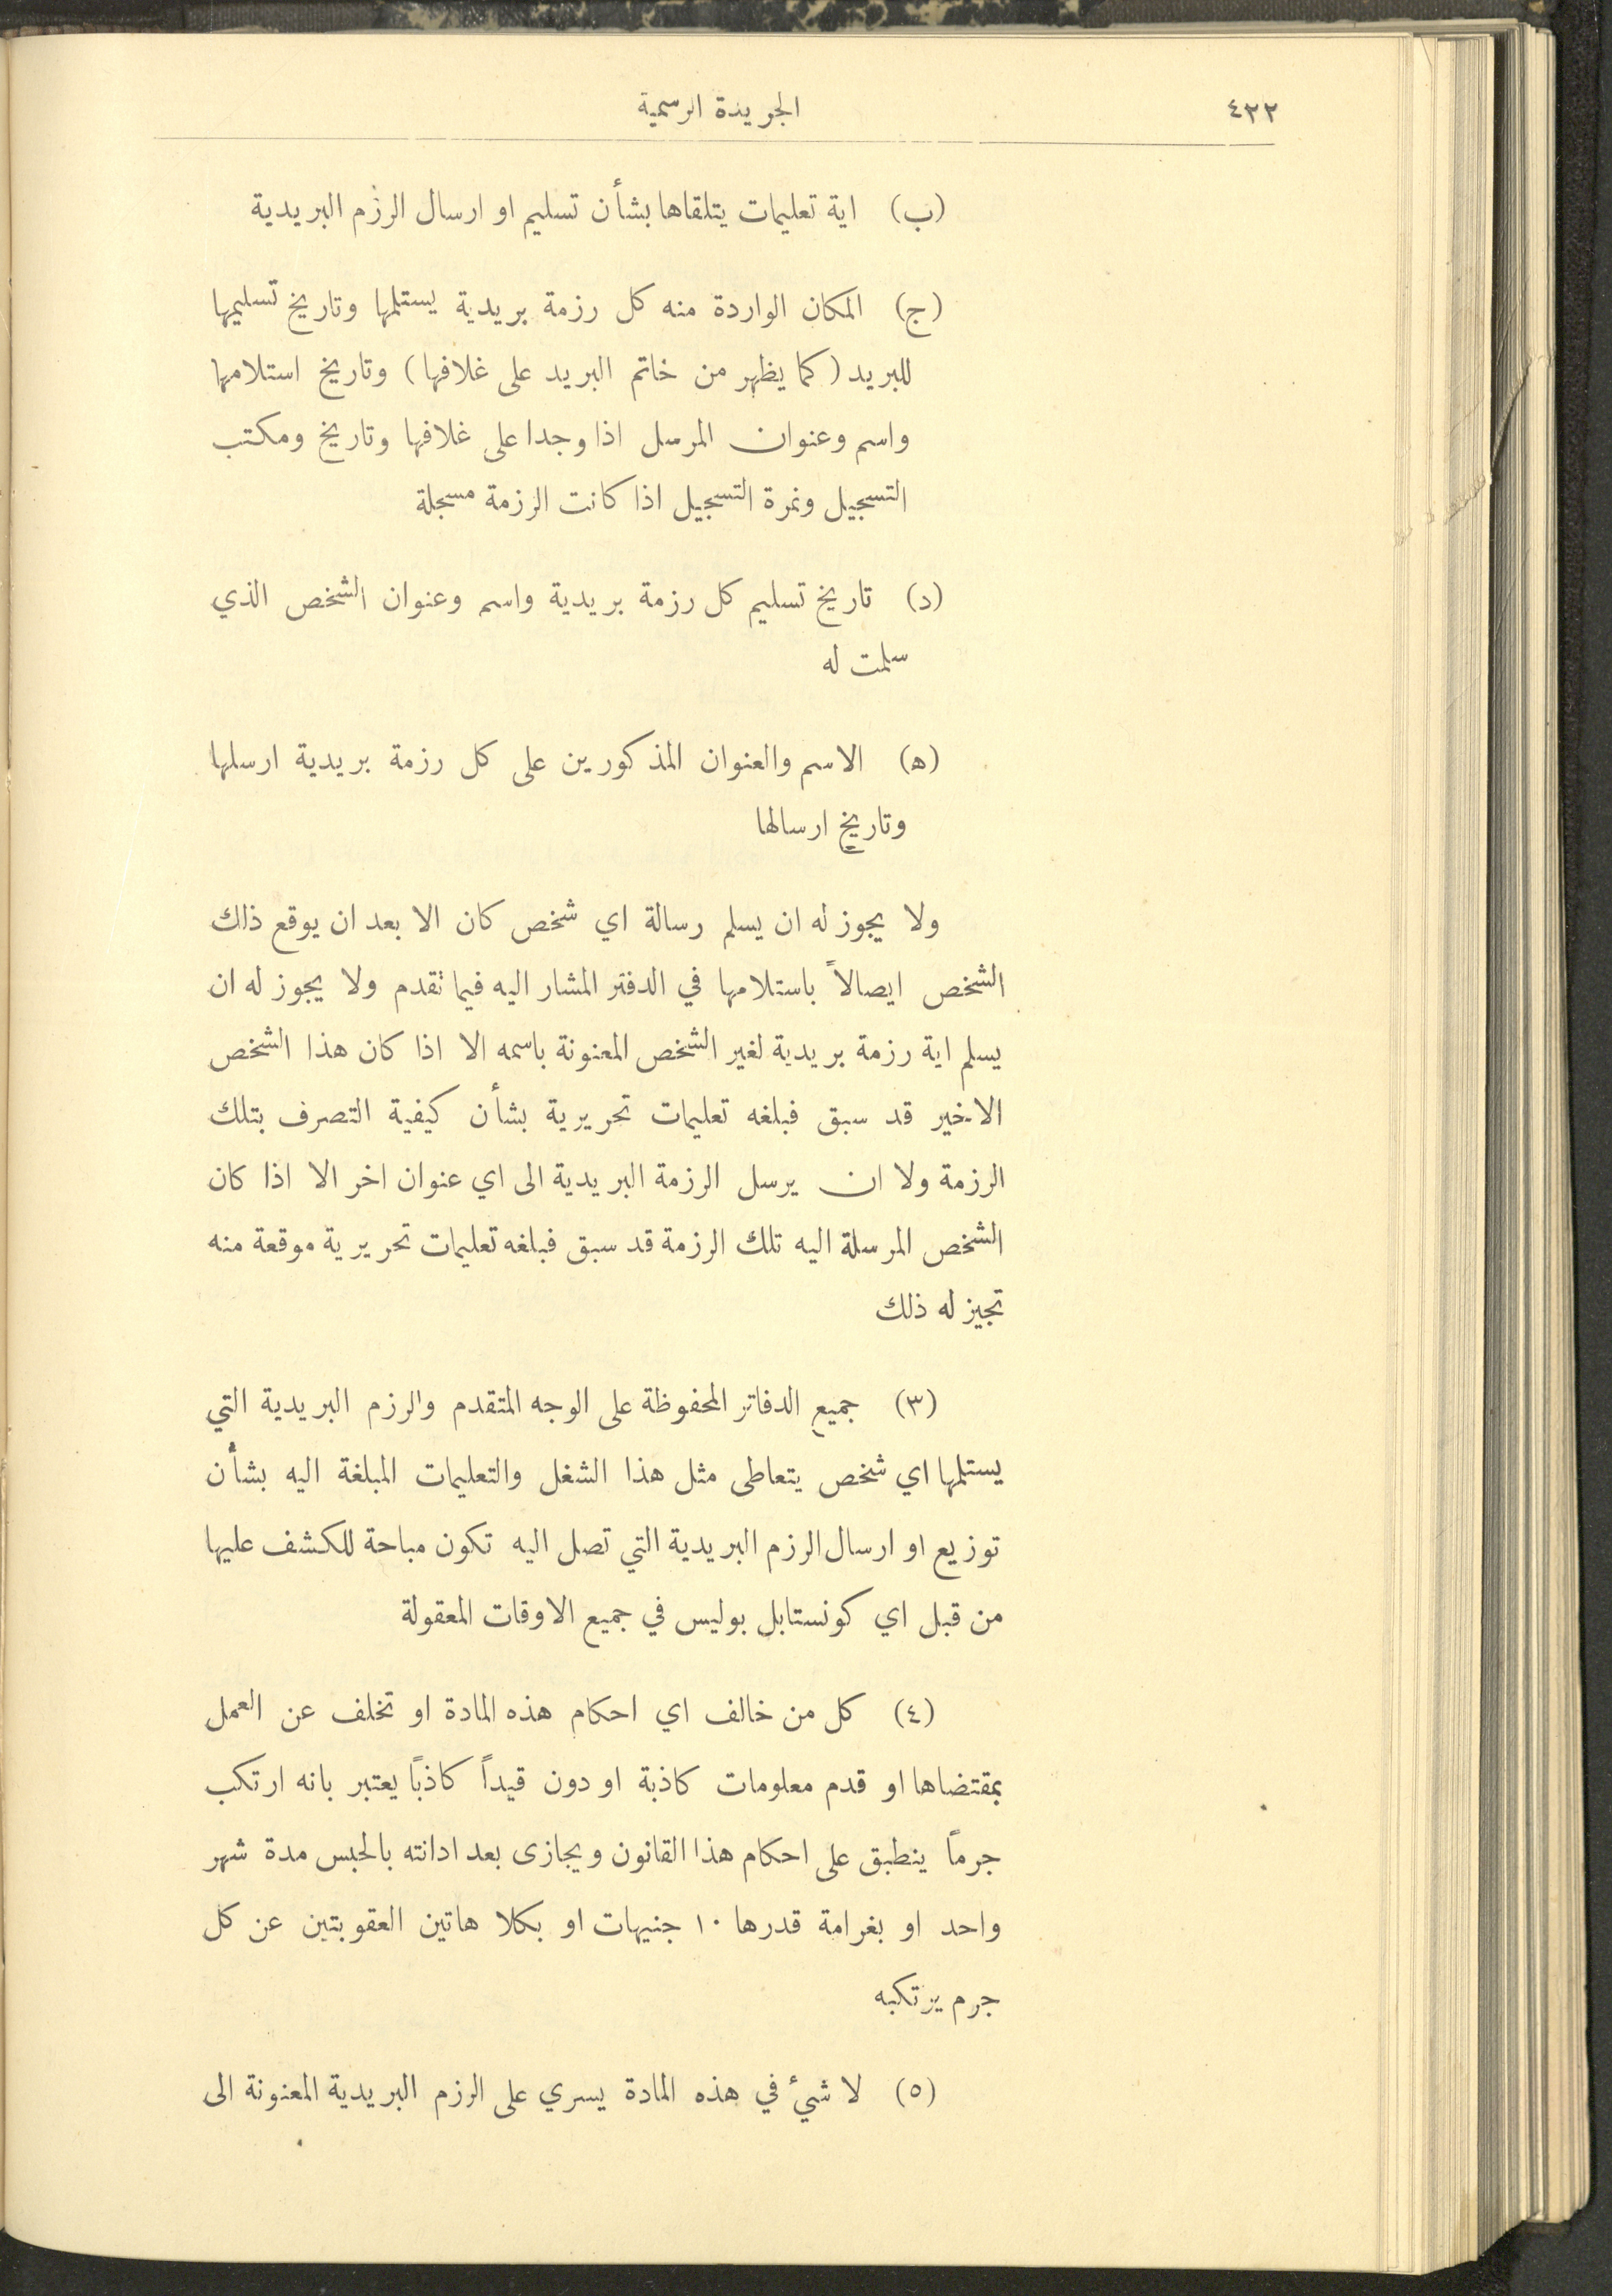 ٤٢٢
الجريدة الرسمية
(ب) اية تعليمات يتلقاها بشأن تسليم او ارسال الرزم البريدية
(ج) المكان الواردة منه كل رزمة بريدية يستلمها وتاريخ تسليمها
للبريد (كما يظهر من خاتم البريد على غلافها) وتاريخ استلامها
واسم وعنوان المرسل اذا وجدا على غلافها وتاريخ ومكتب
التسجيل ونمرة التسجيل اذا كانت الرزمة مسجلة
(د) تاريخ تسليم كل رزمة بريدية واسم وعنوان الشخص الذي
سلمت له
(ه) الاسم والعنوان المذكورين على كل رزمة بريدية ارسلها
وتاريخ ارسالها
ولا يجوز له ان يسلم رسالة اي شخص كان الا بعد ان يوقع ذلك
الشخص ايصالاً باستلامها في الدفتر المشار اليه فيما تقدم ولا يجوز له ان
يسلم اية رزمة بريدية لغير الشخص المعنونة باسمه الا اذا كان هذا الشخص
الاخير قد سبق فبلغه تعليمات تحريرية بشأن كيفية التصرف بتلك
الرزمة ولا ان يرسل الرزمة البريدية الى اي عنوان اخر الا اذا كان
الشخص المرسلة اليه تلك الرزمة قد سبق فبلغه تعليمات تحريرية موقعة منه
تجيز له ذلك
(٣) جميع الدفاتر المحفوظة على الوجه المتقدم والرزم البريدية التي
يستلمها اي شخص يتعاطى مثل هذا الشغل والتعليمات المبلغة اليه بشأن
توزيع او ارسال الرزم البريدية التي تصل اليه تكون مباحة للكشف عليها
من قبل اي كونستابل بوليس في جميع الاوقات المعقولة
(٤) كل من خالف اي احكام هذه المادة او تخلف عن العمل
بمقتضاها او قدم معلومات كاذبة او دون قيداً كاذباً يعتبر بانه ارتكب
جرماً ينطبق على احكام هذا القانون ويجازى بعد ادانته بالحبس مدة شهر
واحد او بغرامة قدرها ١٠ جنيهات او بكلا هاتين العقوبتين عن كل
جرم يرتكبه
(٥) لا شيء في هذه المادة يسري على الرزم البريدية المعنونة الى